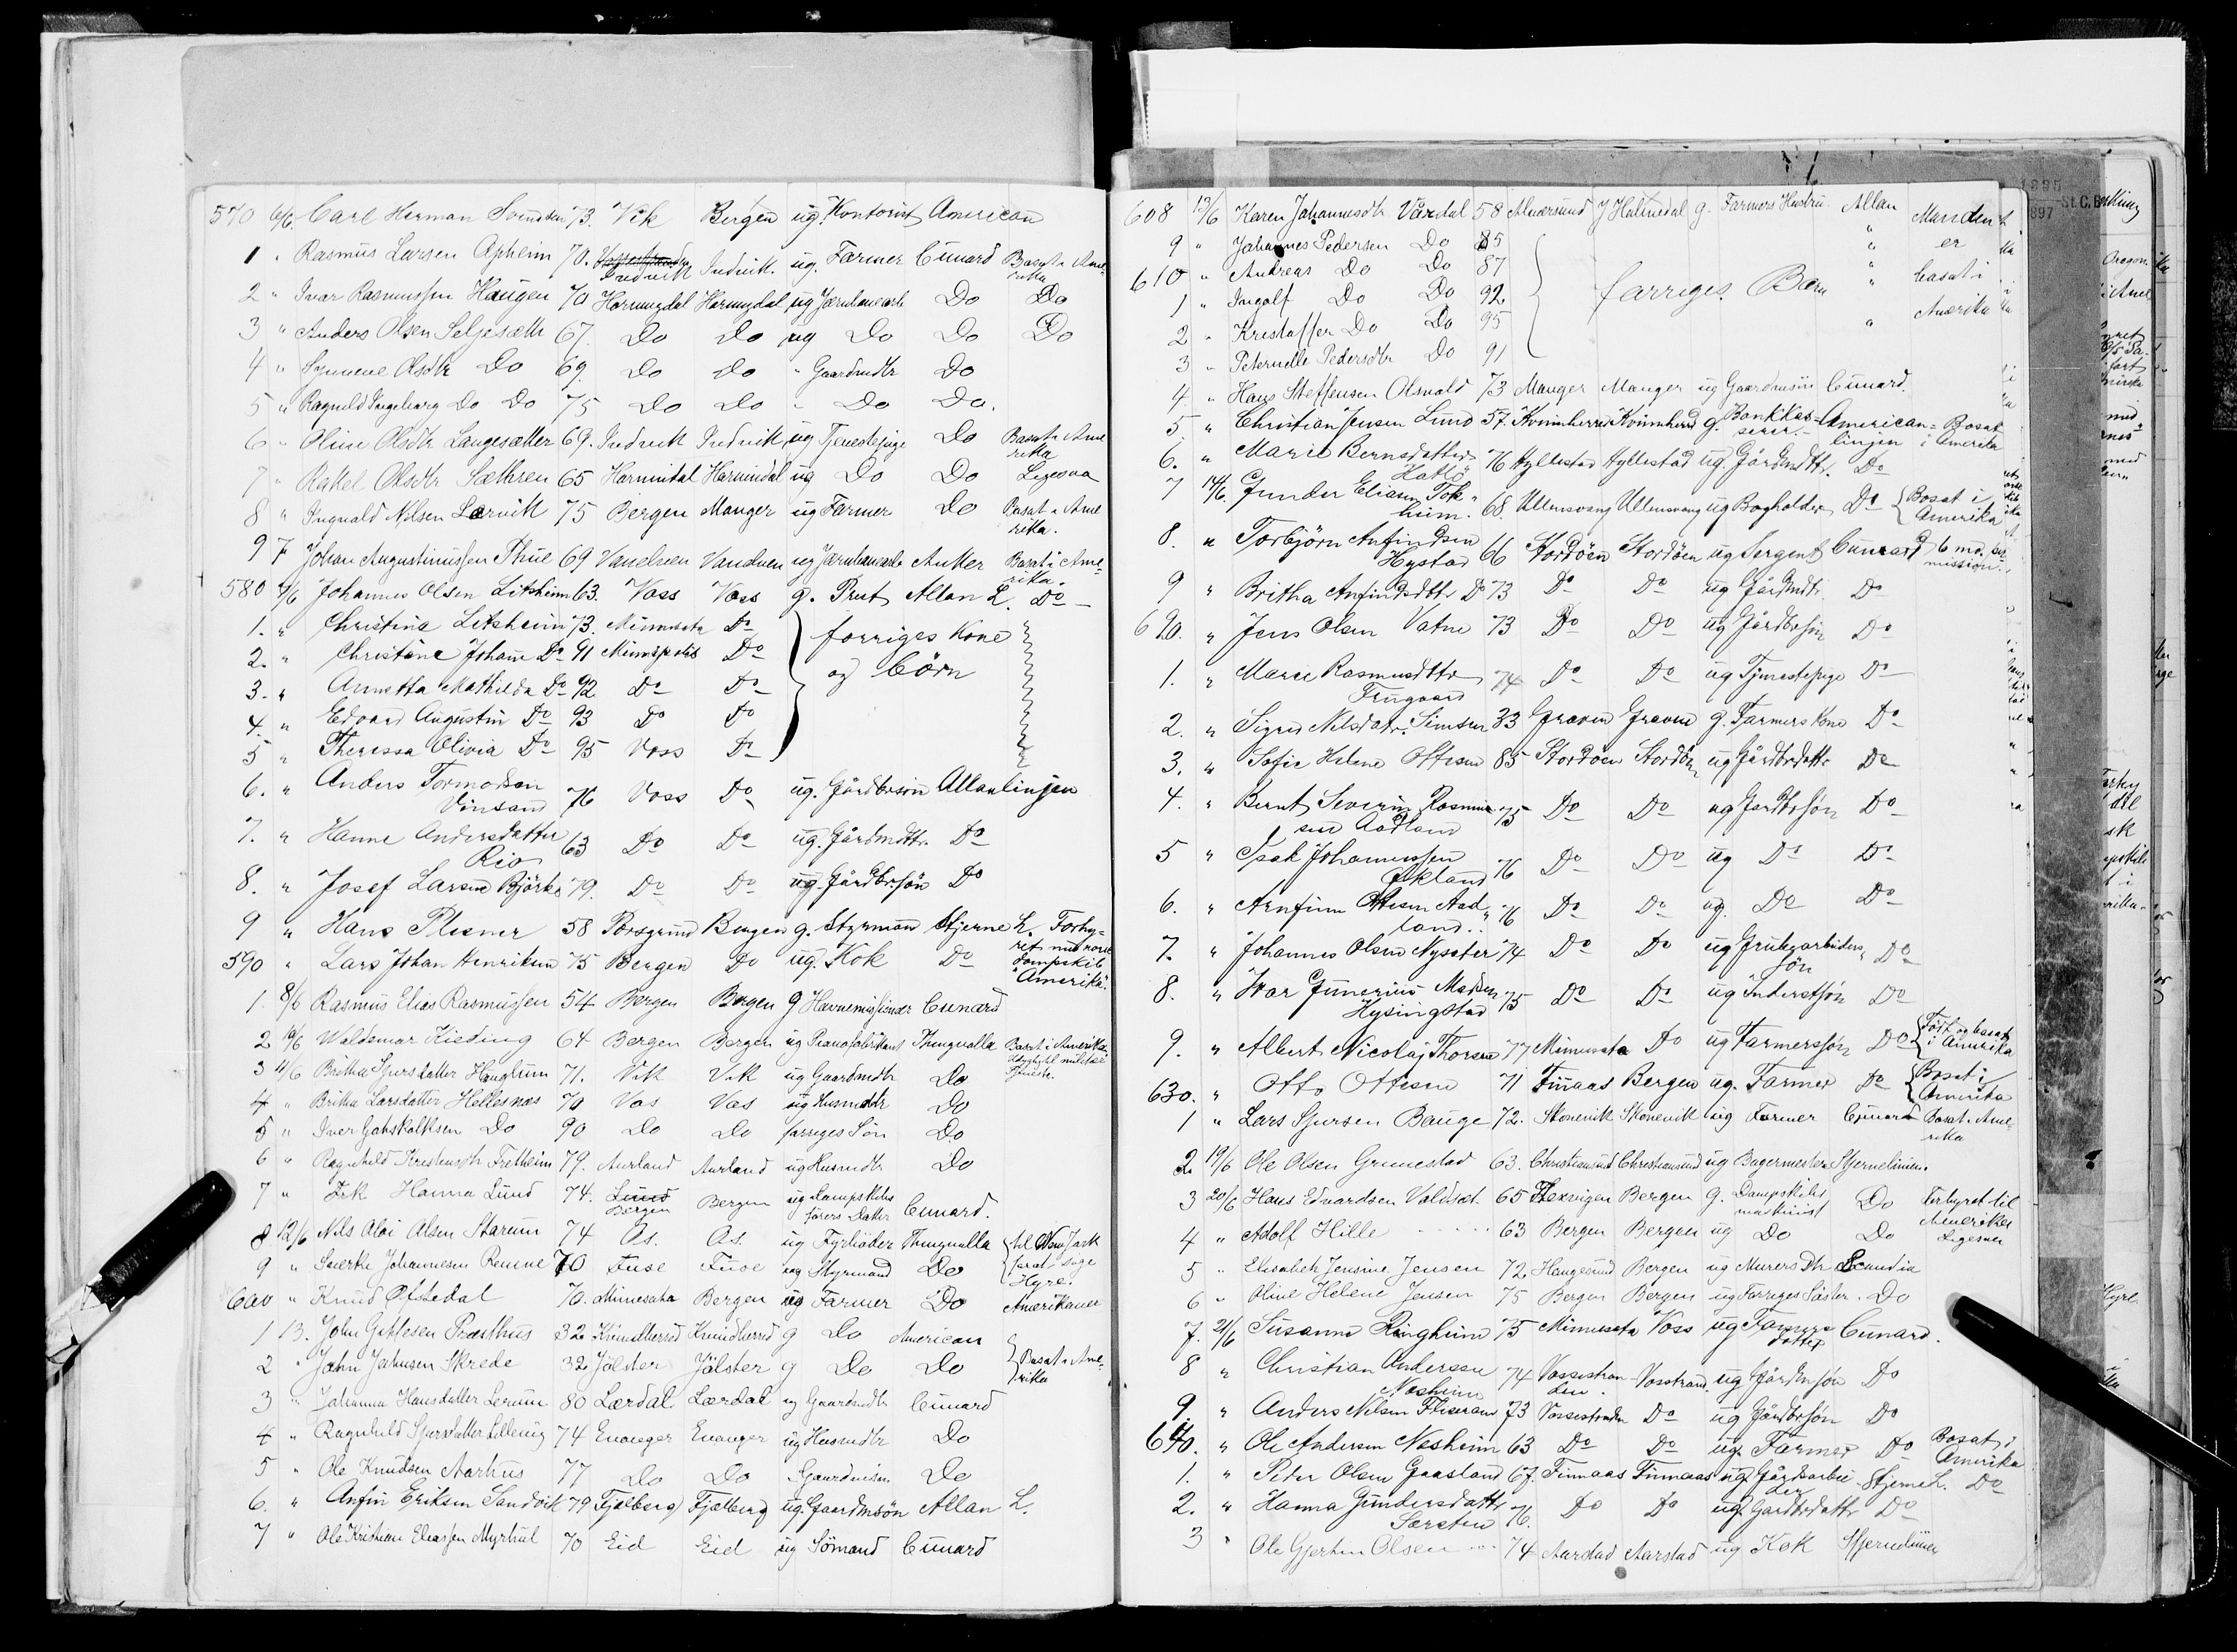 570 6/6. Carl Herman Svendsen 73. Vik Bergen ug. Kontorist American
1 " Rasmus Larsen Apheim 70. Indvik Indvik. ug. Farmer Cunard Bosat i Ame-
rika
2 " Ivar Rasmussen Haugen 70 Hornindal Hornindal ug Jernbanearb Do Do
3 " Anders Olsen Seljesæth 67. Do Do ug Do Do Do
4 " Synneve Olsdtr Do 69. Do Do " Gaardmdtr Do
5 " Ragnild Ingeborg Do Do 75 Do Do " Do Do.
6 " Oline Olsdtr Langesætter 69. Indvik Indvik ug Tjenestepige Do Bosat i Ame
rika
7 " Rakel Olsdtr Sæthren 65 Hornindal Hornindal ug Do Do Ligesaa
8 " Ingvald Nilsen Lervik 75 Bergen Manger ug Farmer Do Bosat i Ame
rika.
9 7 Johan Augustinussen Thue 69 Vanelven Vanelven ug Jernbanearb Anker Bosat i Ame-
rika.
580 9/6 Johannes Olsen Litsheim 63. Voss Voss g. Prest Allan L. Do
1. " Christina Litsheim 73. Minnesota Do forriges Kone
2. " Christine Johane Do 91 Minneapolis Do og børn
3. " Annetta Mathilda Do 92 Do Do
4. " Edvard Augustin Do 93 Do Do
5 " Theressa Olivia Do 95 Voss Do
6. " Anders Tormodsen
Vinsand 76 Voss Do ug. Gårdbrsøn Allanlinjen
7. " Hanne Andersdatter
Rio 63 Do Do ug. Gårdmdttr. Do
8. " Josef Larsen Björke 79. Do Do ug. Gårdbr.søn Do
9 " Hans Plesner 58 Porsgrund Bergen g. Styrmand Stjerne L. Forhy-
ret med norsk
590 " Lars Johan Henriksen 75 Bergen Do ug. Kok Do dampskib
"Amerika".
1. 8/6 Rasmus Elias Rasmussen 54 Bergen Bergen g Havnemissionær Cunard
2 10/6 Waldemar Kieding 64 Bergen Bergen ug Pianofabrikant Thingvalla Bosat i Amerika
3 11/6 Britha Sjursdatter Hauglum 71. Vik Vik ug Gaardmdtr Do
4 " Britha Larsdatter Hellesnæs 70 Vos Vos ug Husmdtr Do
5 " Iver Gotskalksen Do 90 Do Do forriges Søn Do
6 " Ragnhild Kristensdtr Fretheim 79. Aurland Aurland ug Husmdtr Do
7 " Frk Hanna Lund 74. Bergen Bergen ug Dampskibs
førers Datter Cunard.
8 12/6 Nils Olai Olsen Starum 74 As. As. ug Fyrbøder Thingvalla til New York
for at søge
Hyre.
9 " Sverke Johannesen Revne 70 Fuse Fuse ug Styrmand Do
600 " Knud Ofstedal 70. Minnesota Bergen ug Farmer Do Amerikaner
1 13. John Gitlesen Præsthus 32 Kvindherred Kvindherred g Do American
2 " John Johnsen Skrede 32 Jølster Jølster g Do Do Bosat i Ame-
rika
3 " Johanna Hansdatter Lerum 80 Lærdal Lærdal ug Gaardmdtr Cunard
4 " Ragnhild Sjursdatter Lilleeng 74 Evanger Evanger ug Husmdtr Do
5 " Ole Knudsen Aarhus 77 Do Do " Gaardmsøn Do
6. " Anfin Eriksen Sandvik 79 Fjelberg Fjelberg ug. Gaardmsøn Allan L.
7 " Ole Kristian Eliassen Myrhul 70 Eid Eid ug Sömand Cunard
608 13/6 Karen Johannesdtr Vårdal 58 Alversund g. Farmers Hustru Allan Manden
9 " Johannes Pedersen Do 85 " er
610 " Andreas Do Do 87 forriges Børn " bosat i
1 " Ingolf Do Do 92 Amerika
2 " Kristoffer Do Do 95 "
3 " Peternelle Pedersdtr Do 91
4 " Hans Steffensen Olsvold 73 Manger Manger ug Gaardmsøn Cunard.
5 " Christian Jensen Lund 57. Kvinnherred Kvinnherred g. Bankkas-
serer. American-
linjen Bosat
i Amerika
6. " Marie Bernsdatter
Hatlø 76 Hyllestad Hyllestad ug. Gårdmdttr. Do
7 14/6. Gunder Eliasen Tok-
heim. 68. Ullensvang Ullensvang ug Bogholder Do Bosat i
Amerika
8. " Torbjörn Anfindsen
Hystad 66 Stordöen Stordöen ug Sergent Cunard 6 md. per-
mission.
9 " Britha Anfindsdttr Do 73 Do Do ug Gårdmdtr. Do
620. " Jens Olsen Vatne 73 Do Do ug Gårdbrsøn Do
1. " Marie Rasmusdttr
Frugaard 74 Do Do ug Tjenestepige Do
2. " Sigrid Nilsdatr. Simsen 33 Graven Graven g. Farmers Kone Do
3. " Sofie Helene Ottesen 85 Stordöen Stordöen ug Gårdbrdattr Do
4. " Bernt Severin Rasmus-
sen Aadland 75 Do Do ug Gårdbrsøn Do
5 " Isak Johannessen
Ekland 76 Do Do ug Do Do
6. " Arnfinn Ottesen Aad-
land.. 76 Do Do ug. Do Do
7. " Johannes Olsen Nysæter 74 Do Do ug Grubearbeiders
søn Do
8. " Ivar Gunerius Madsen
Hysingstad 75 Do Do ug Inderstsøn Do
9. " Albert Nicolaj Thorsen 77 Minnesota Do ug Farmerssøn Do Født og bosat
i Amerika
630. " Otto Ottesen 71 Finaas Bergen ug. Farmer Do Bosat i
Amerika
1 " Lars Sjursen Bauge 72. Skonevik Skonevik ug Farmer Cunard Bosat i Ame-
rika
2. 19/6 Ole Olsen Grunnestad 63. Christiansund Christiansund ug Bagermester Stjernelinien.
3 20/6 Hans Edvardsen Valdset. 65 Bergen g. Dampskibs
maskinist Do Forhyret til
Amerika
4 " Adolf Hille 63 Bergen Bergen ug Do Do Ligesaa
5 " Elisabeth Jensine Jensen 72 Haugesund Bergen ug Murers Dtr Scandia
6 " Oline Helene Jensen 75 Bergen Bergen ug Forriges Søster. Do
7. 21/6 Susanne Ringheim 75 Minnesota Voss ug Farmers
datter Cunard.
8 " Christian Andersen
Nesheim 74 Vossestran-
den. Vosstrand. ug Gårdmsøn Do
9. " Anders Nilsen 73 Vossestranden Do ug Gårdbrsøn Do
640. " Ole Andersen Nesheim 63 Do Do ug. Farmer Do Bosat i
Amerika
1. " Peter Olsen Gaasland 67. Finnaas Finnaas ug Gårdsarbei-
der Stjerne L. Do
2. " Hanna Gundersdattr
Særeten 76. Do Do ug. Gardbrdattr Do
3 " Ole Gjertin Olsen 74 Aarstad Aarstad ug Kok Stjernelinien